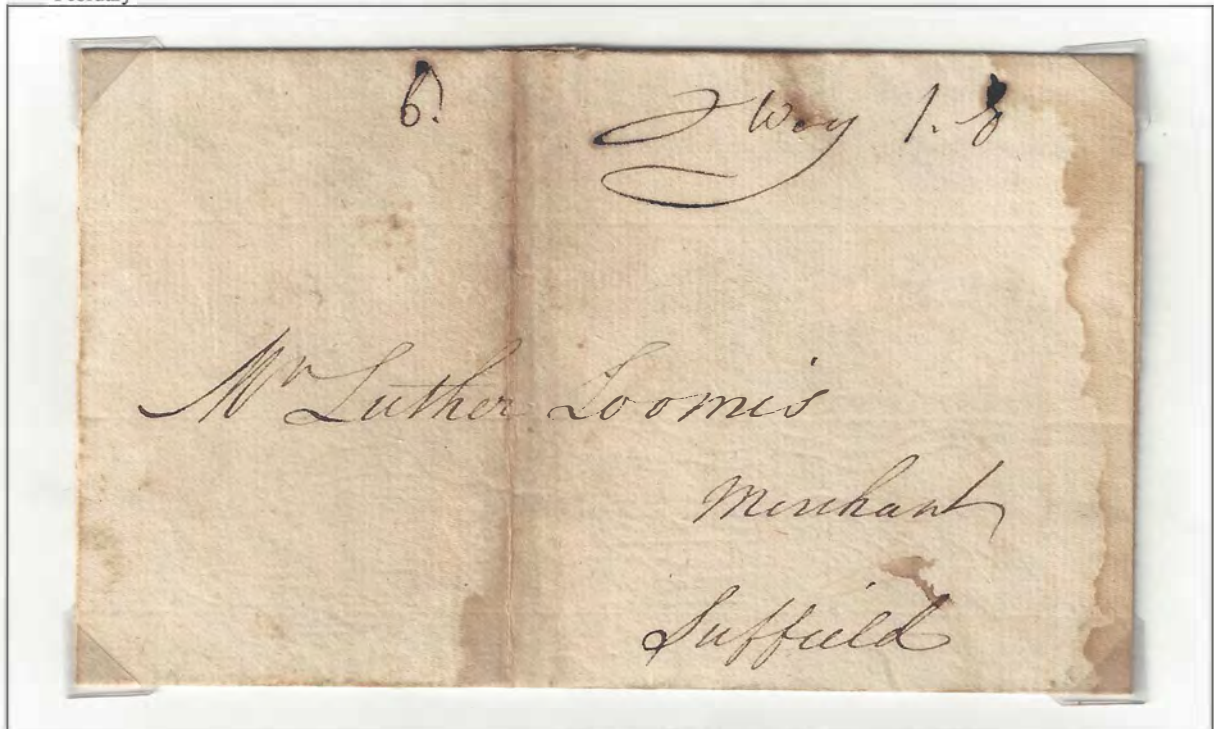 6.
Way 1. 8
Mr Luther Loomis
Merchant
Suffield